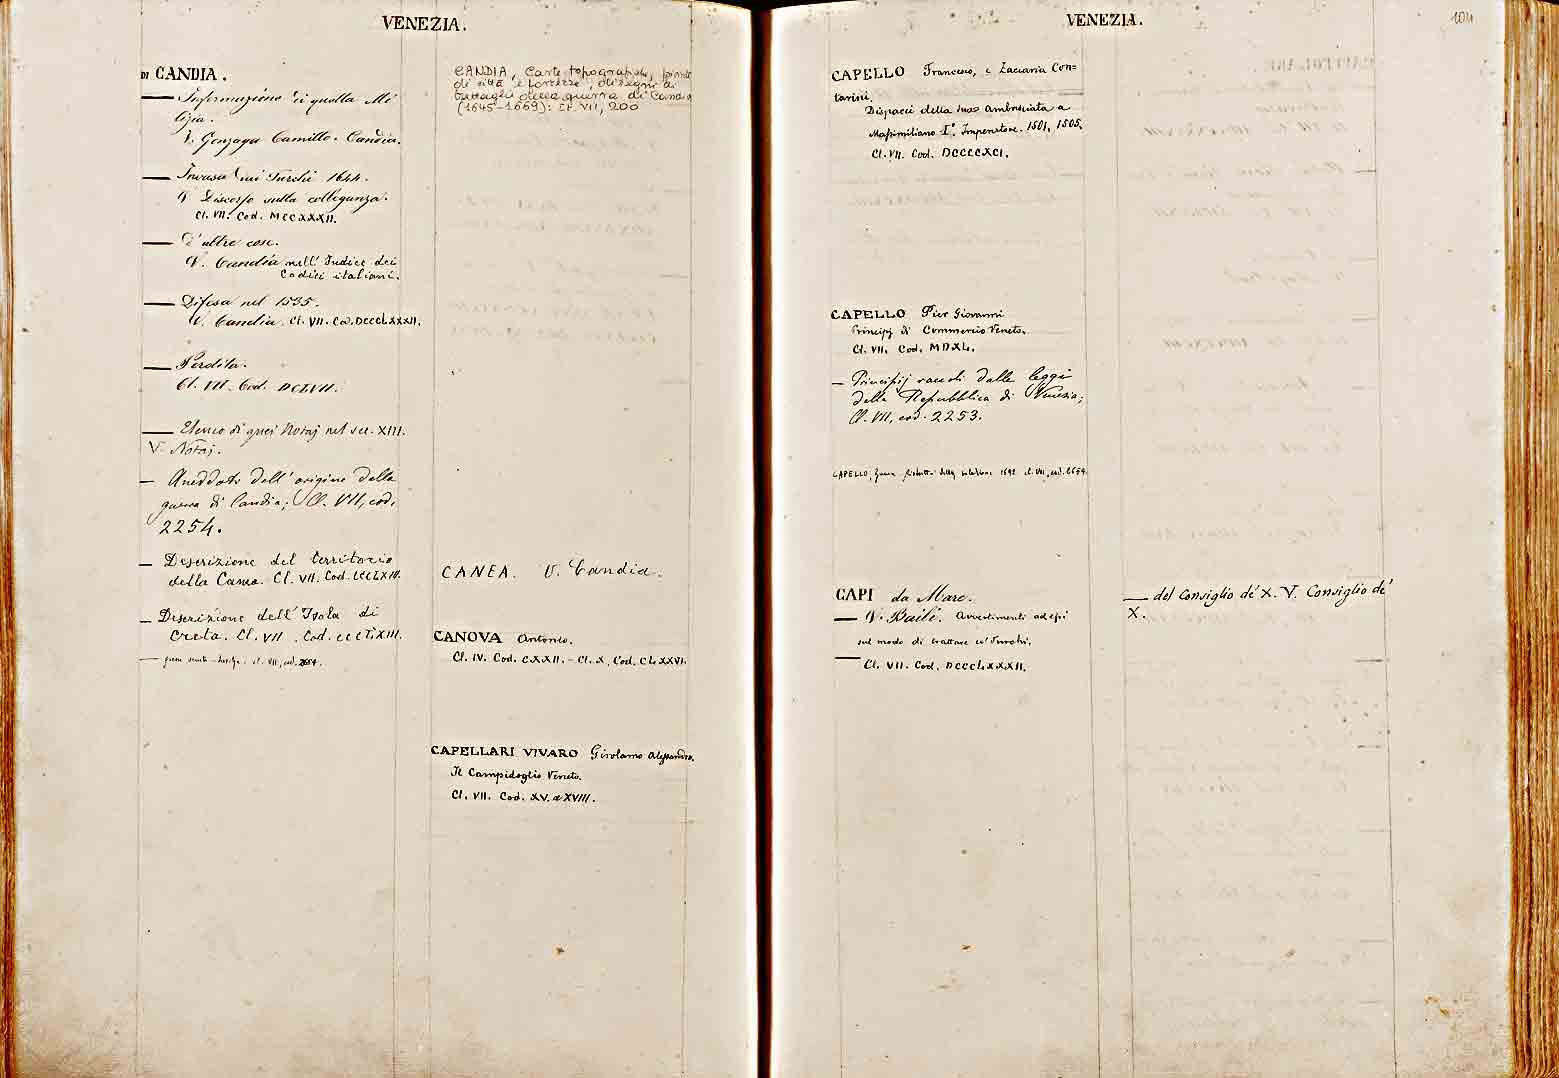 VENEZIA.
DI CANDIA.
— Informazione di quella Mi
lizia.
V. Gonzaga Camillo. Candia.
— Invasa dai Turchi 1644.
V. Discorso sulla colleganza.
Cl. VII. Cod. MCCXXXII.
— d'altre cose.
V. Candia nell'Indice dei
Codici italiani.
— Difesa nel 1535.
V. Candia. Cl. VII. Cod. DCCCLXXXII.
— Perdita.
Cl. VII. Cod. DCLVII.
— Elenco di quei Notaj nel sec. XIII.
V. Notaj.
— Aneddoti dell'origine della
guerra di Candia; Cl. VII, cod.
2254.
— Descrizione del territorio
della Canea. Cl. VII. Cod.
— Descrizione dell'Isola di
Creta. Cl. VII. Cod. CCCLXIII.
— cl. VII, cod. 2654.
CANDIA, Carte topografiche, piante
di città e fortezze, disegni di
battaglie della guerra di Candia
(1645-1669): It. VII, 200
CANEA. V. Candia.
CANOVA Antonio.
Cl. IV. Cod. CXXII. - Cl. X. Cod. CLXXVI.
CAPELLARI VIVARO Girolamo Alessandro.
Il Campidoglio Veneto.
Cl. VII. Cod. XV. a XVIII.
VENEZIA.
104
CAPELLO Francesco, e Zaccaria Con=
tarini.
Dispacci della sua Ambasciata a
Massimiliano I.° Imperatore. 1501, 1505.
Cl. VII. Cod. DCCCCXCI.
CAPELLO Pier Giovanni
Principj di Commercio Veneto.
Cl. VII. Cod. MDXL.
— Principij raccolti dalle leggi
della Repubblica di Venezia;
Cl. VII, cod. 2253.
CAPELLO, della 1692 cl. VII, cod. 2654.
CAPI da Mare.
— V. Baili. Avvertimenti ad essi
sul modo di trattare co' Turchi.
— Cl. VII. Cod. DCCCLXXXII.
— del Consiglio de' X. V. Consiglio de'
X.